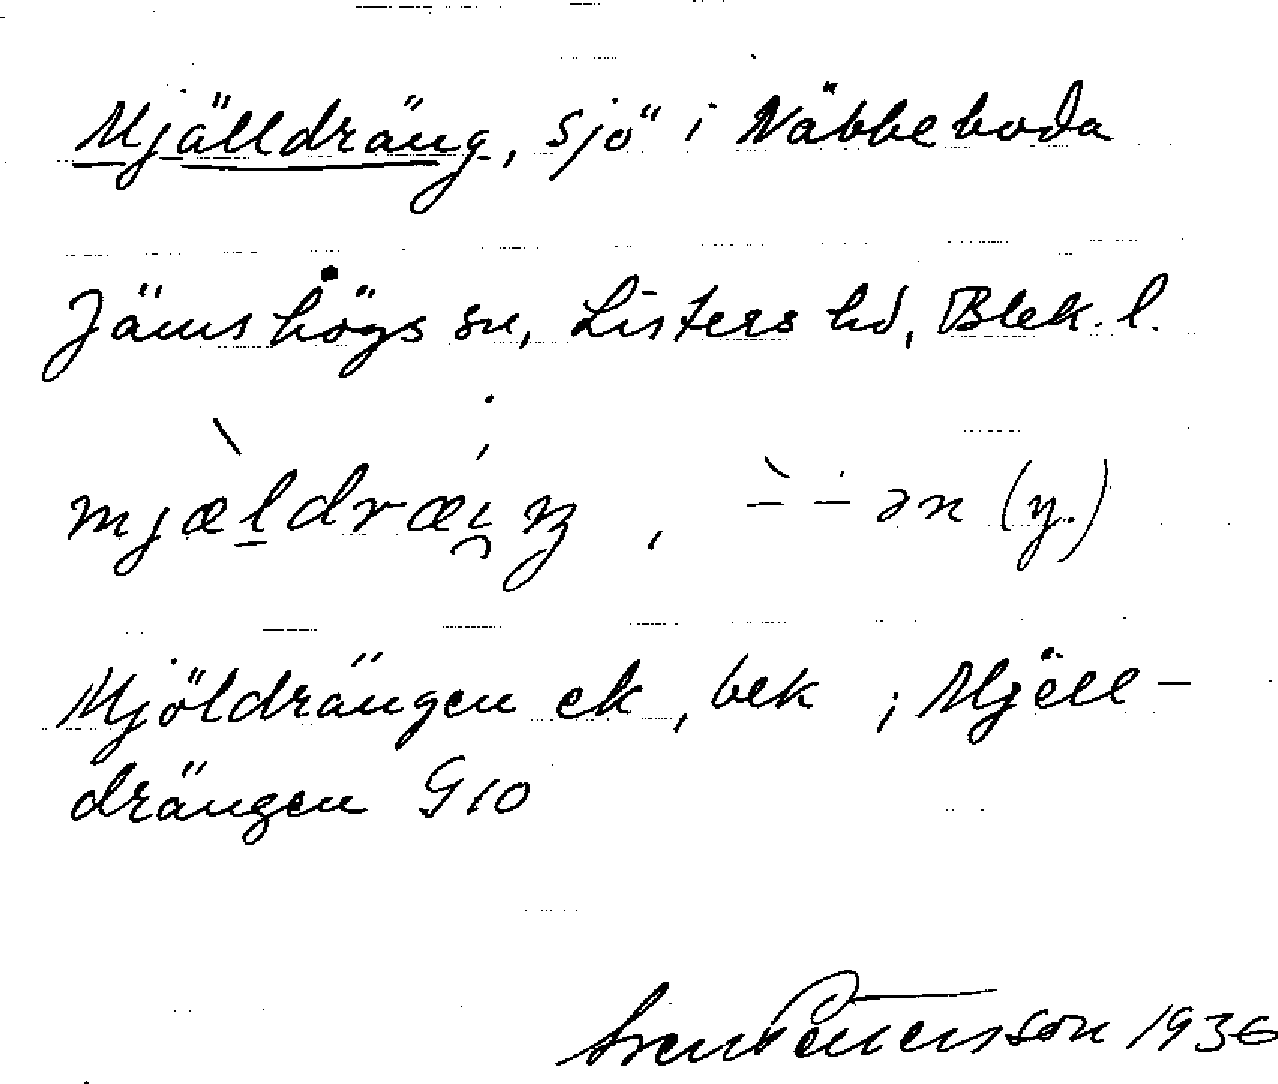 Mjälldräng, sjö i Näbbeboda
Jämshögs sn, Listers hd, Blek. l.
mjæ̀ldræ̇i̯ŋ, -̀ -̇ ən (y.)
Mjöldrängen ek, bek ; Mjell-
drängen G10
Sven Petersson 1936